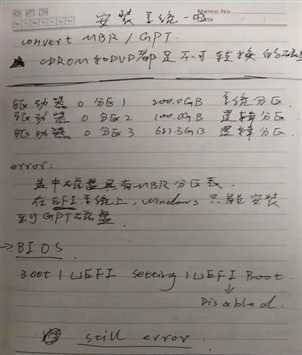 安装系统
convert MBR / GPT
CDROM和DVD都是不可转换的
驱动器 0 分区 1 200.0GB 系统分区
驱动器 0 分区 2 100.0GB 逻辑分区
驱动器 0 分区 3 631.5GB 逻辑分区
error:
选中磁盘具有MBR分区表.
在EFI系统上, windows 只能安装
到GPT磁盘.
→ BIOS
Boot | UEFI Setting | UEFI Boot
↓
Disabled.
still error.